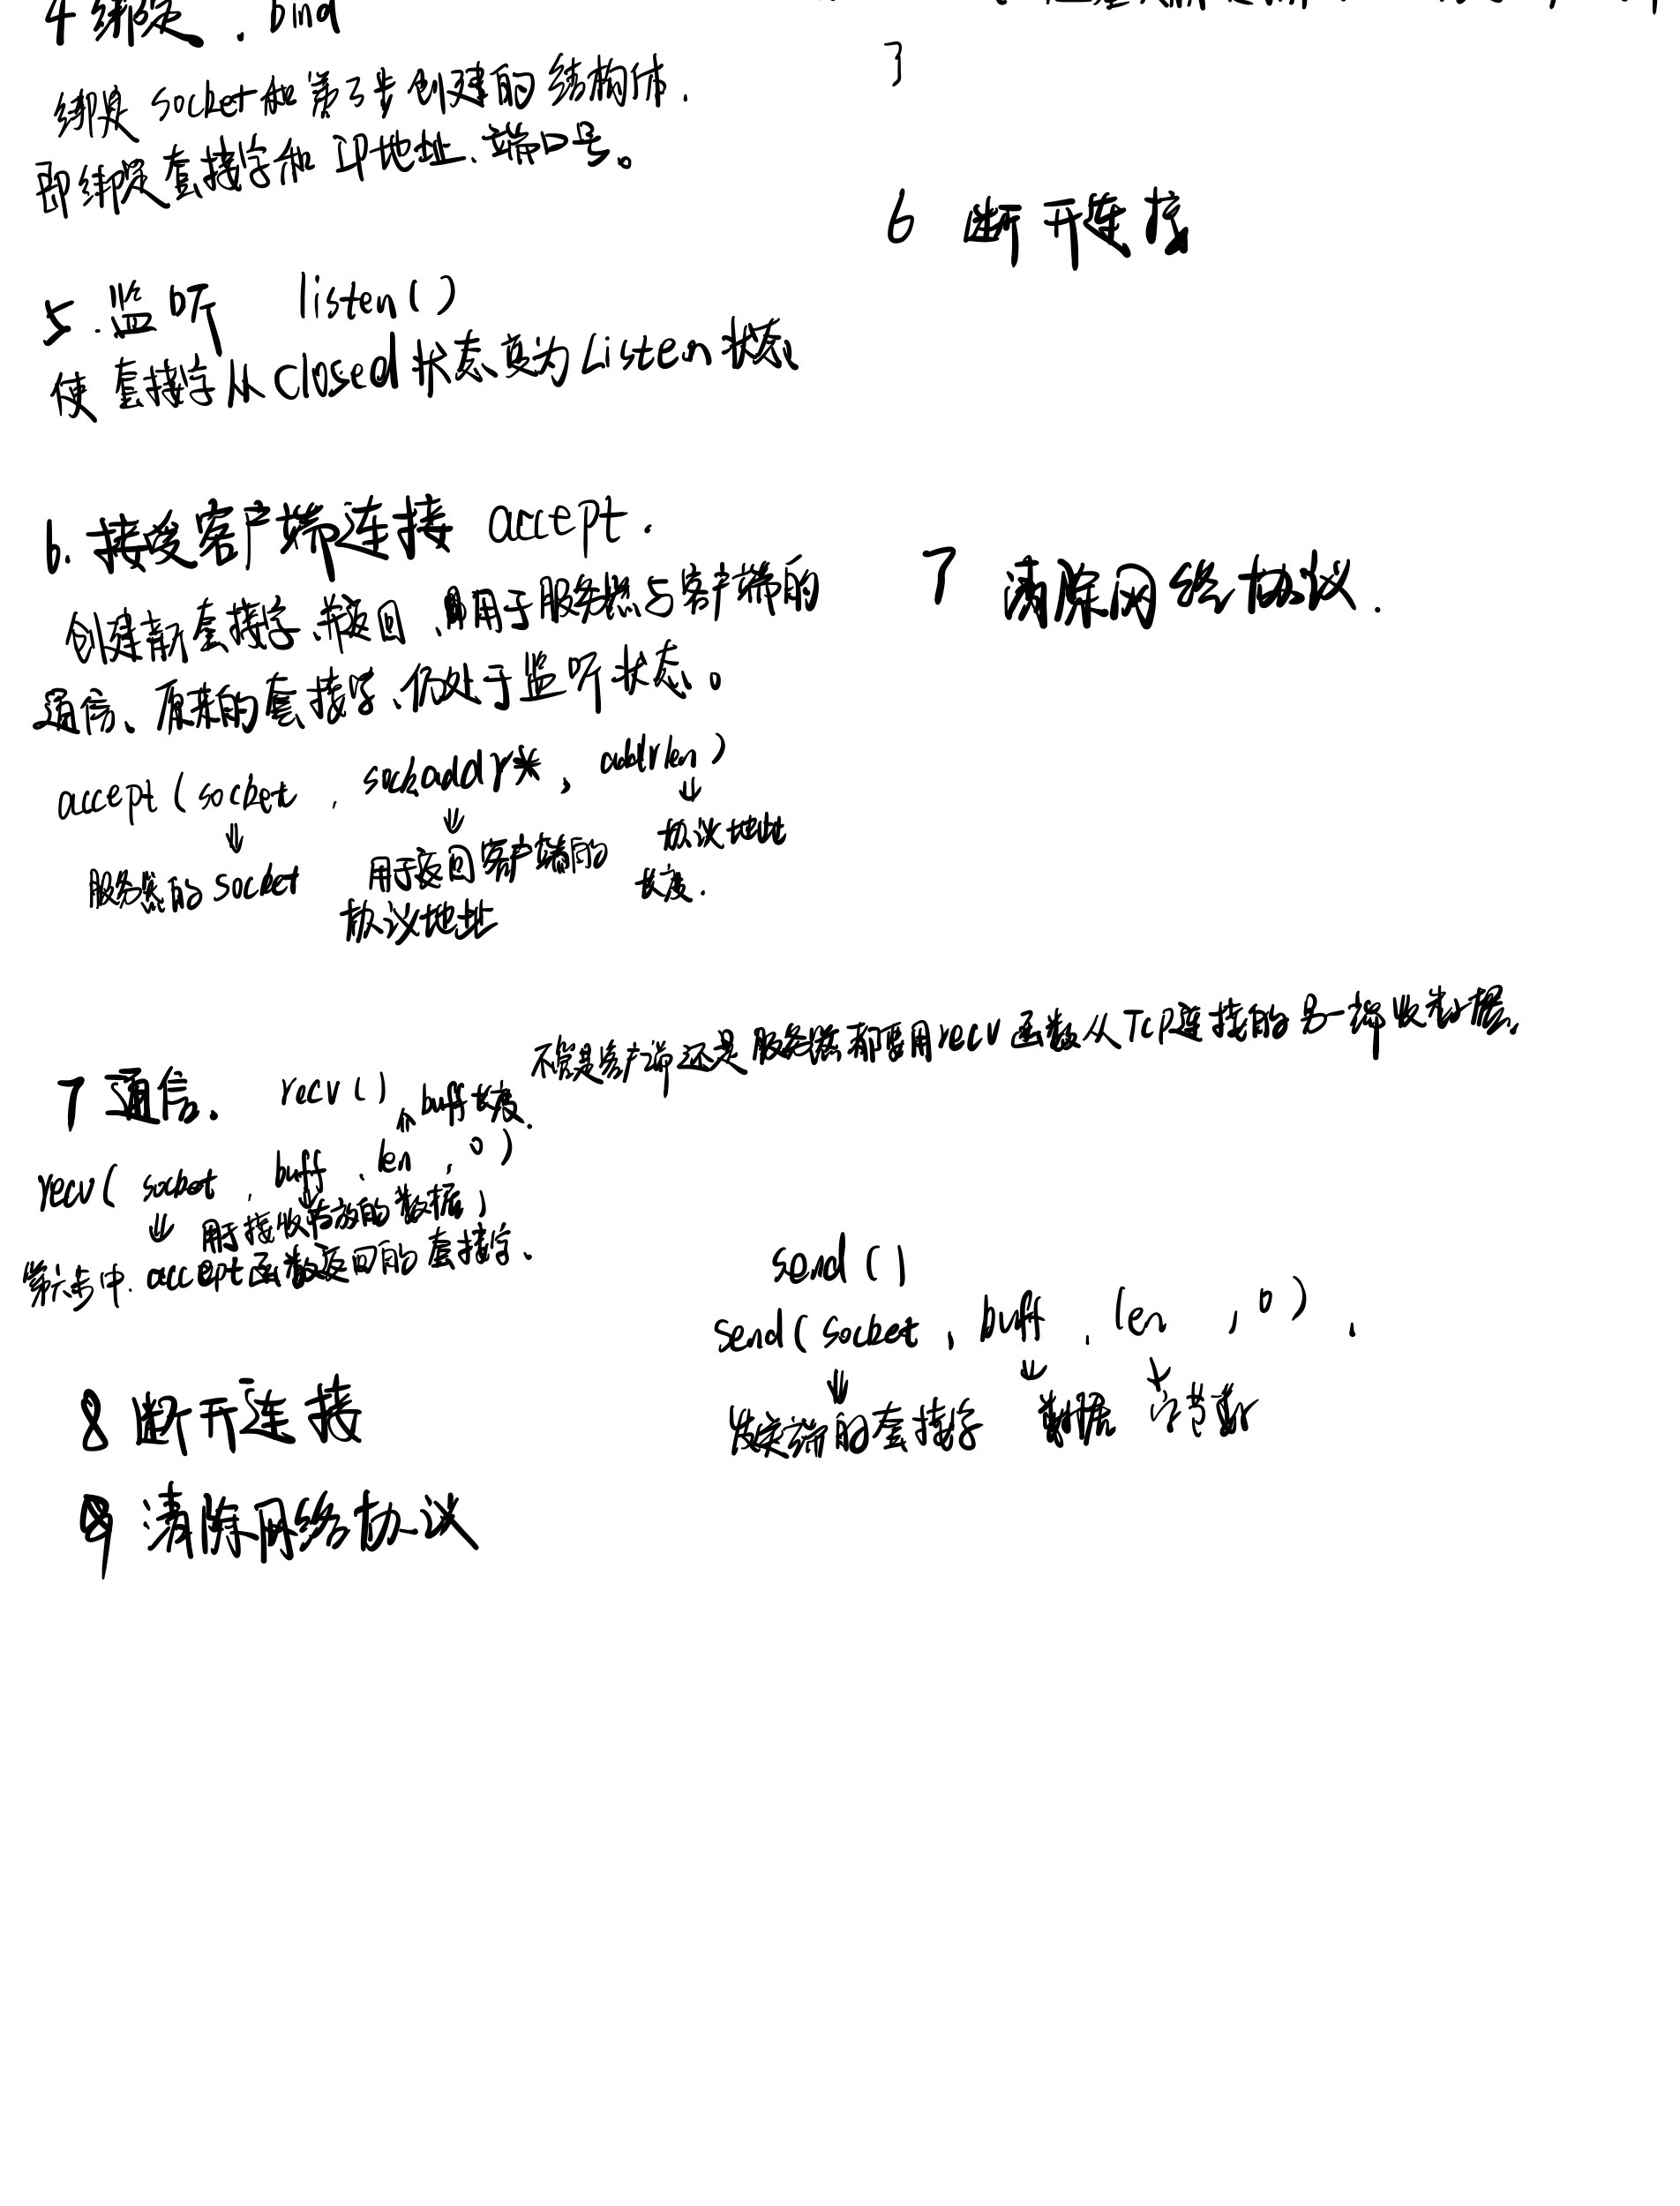 4 绑定 . bind
绑定 socket和第3步创建的结构体.
即绑定套接字和 IP地址、端口号。
5.监听 listen()
使 套接字从 closed 状态变为 Listen 状态、
6. 接受客户端连接 accept.
创建新套接字、并返回、用于服务器与客户端的
通信、原来的套接字、仍处于监听状态。
accept (socket , sockaddr* , addrlen)
服务器的 socket 用于返回客户端的 协议地址
协议地址 长度.
7 通信. recv() buff 长度. 不管是客户端还是服务器都要用recv 函数从TCP连接的另一端收数据,
recv( socket , buff , len , 0 )
用于接收存放的数据,
第六步中. accept函数返回的套接字、
8 断开连接
9 清除网络协议
}
6 断开连接
7 清除网络协议.
send()
send( socket , buff , len , 0 ) ,
发送端的套接字 数据 字节数